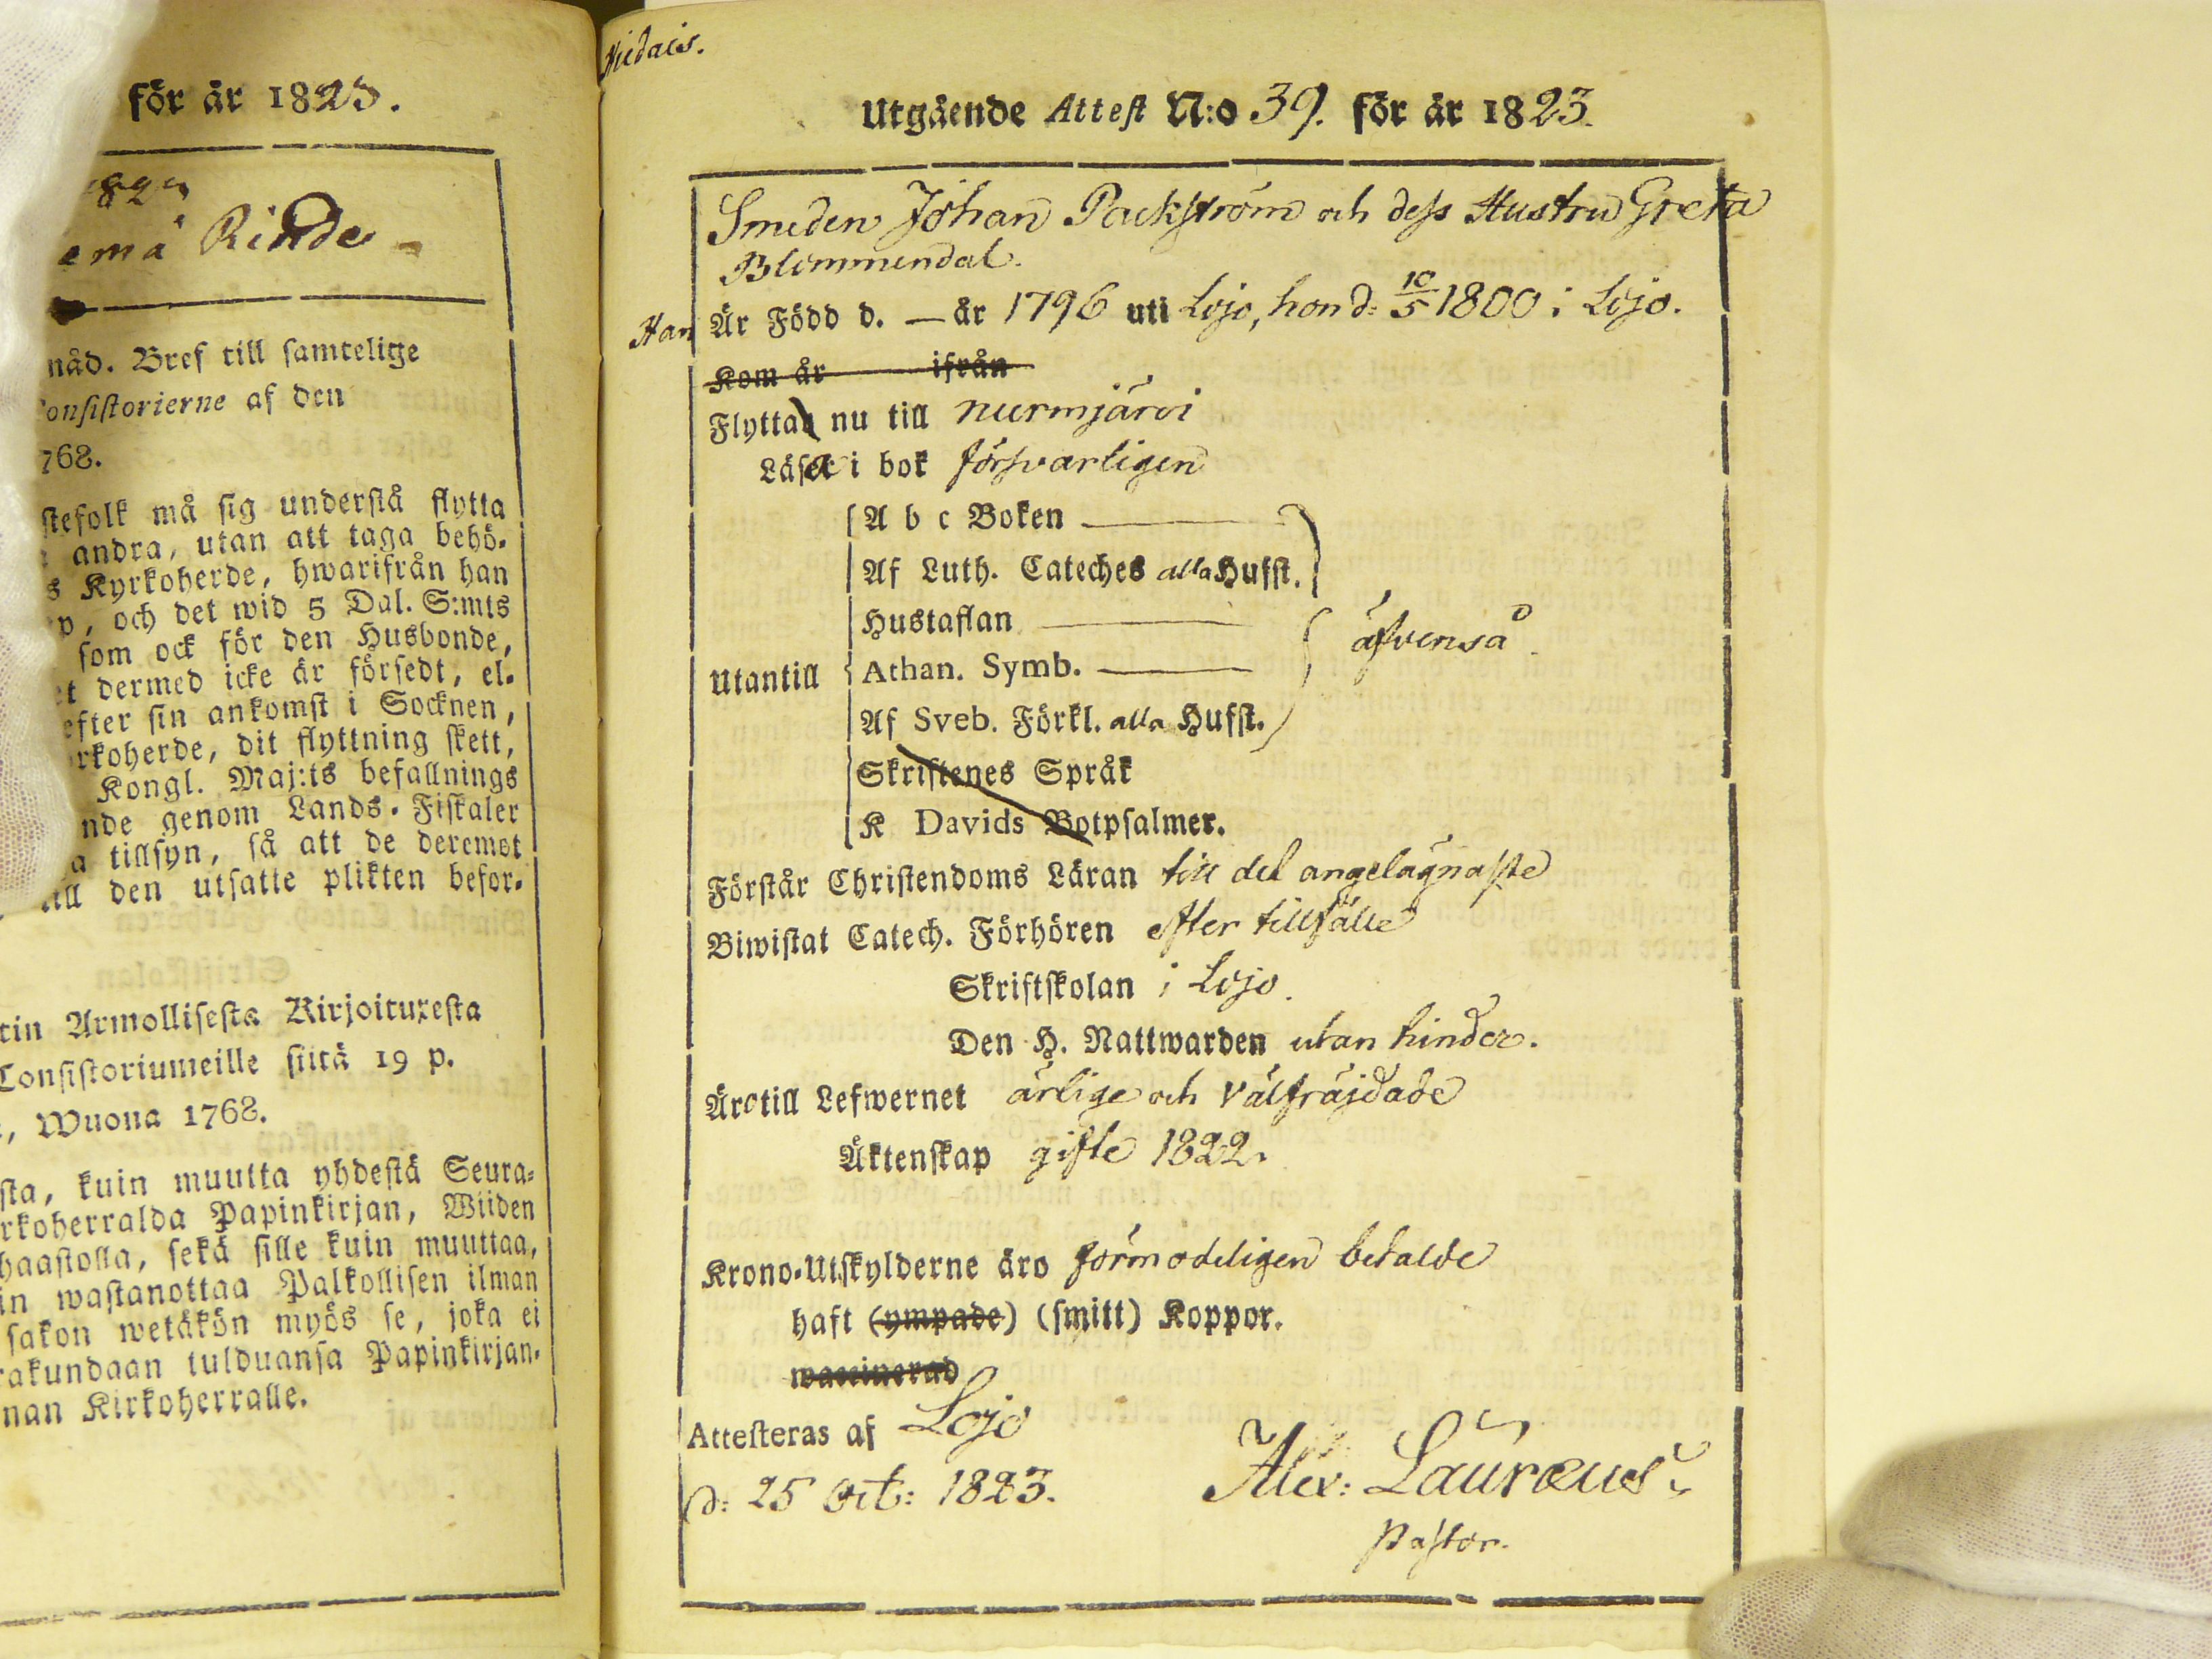 för år 1823.
emä Rinde
nåd. Bref till samtelige
Consistorierne af den
768.
stefolk må sig understå flytta
andra, utan att taga behö-
s Kyrkoherde, hwarifrån han
p, och det wid 5 Dal. S:mts
som ock för den Husbonde,
et dermed icke är försedt, el-
efter sin ankomst i Socknen,
rkoherde, dit flyttning skett,
Kongl. Maj:ts befallnings
nde genom Lands-Fiskaler
a tillsyn, så att de deremot
till den utsatte plikten befor-
tin Armollisesta Kirjoituxesta
Consistoriumeille siitä 19 p.
, Wuona 1768.
sta, kuin muutta yhdestä Seura-
rkoherralda Papinkirjan, Wiiden
haastolla, sekä sille kuin muuttaa,
in wastanottaa Palkollisen ilman
sakon wetäkön myös se, joka ei
rakundaan tulduansa Papinkirjan-
nan Kirkoherralle.
Utgående Attest N:o 39. för år 1823.
Smeden Johan Packström och dess Hustru Greta
Blommendal.
Han Är Född d. — år 1796 uti Lojo, hon d: 10/5 1800 i Lojo.
Kom år ifrån
Flytta nu till nurmjärvi
Läsa i bok försvarligen
A b c Boken
Af Luth. Cateches alla Hufst.
Hustaflan
äfvenså
Utantill Athan. Symb.
Af Sveb. Förkl. alla Hufst.
Skriftenes Språk
K Davids Botpsalmer.
Förstår Christendoms Läran till det angelägnaste
Biwistat Catech. Förhören efter tillfälle
Skriftskolan i Lojo.
Den H. Nattwarden utan hinder.
Äro till Lefwernet ärlige och välfräjdade
Äktenskap gifte 1822.
Krono-Utskylderne äro förmodeligen betalde
haft (ympade) (smitt) Koppor.
waccinerad
Attesteras af Lojo
d: 25 Oct: 1823. Alex: Lauræus
Pastor.